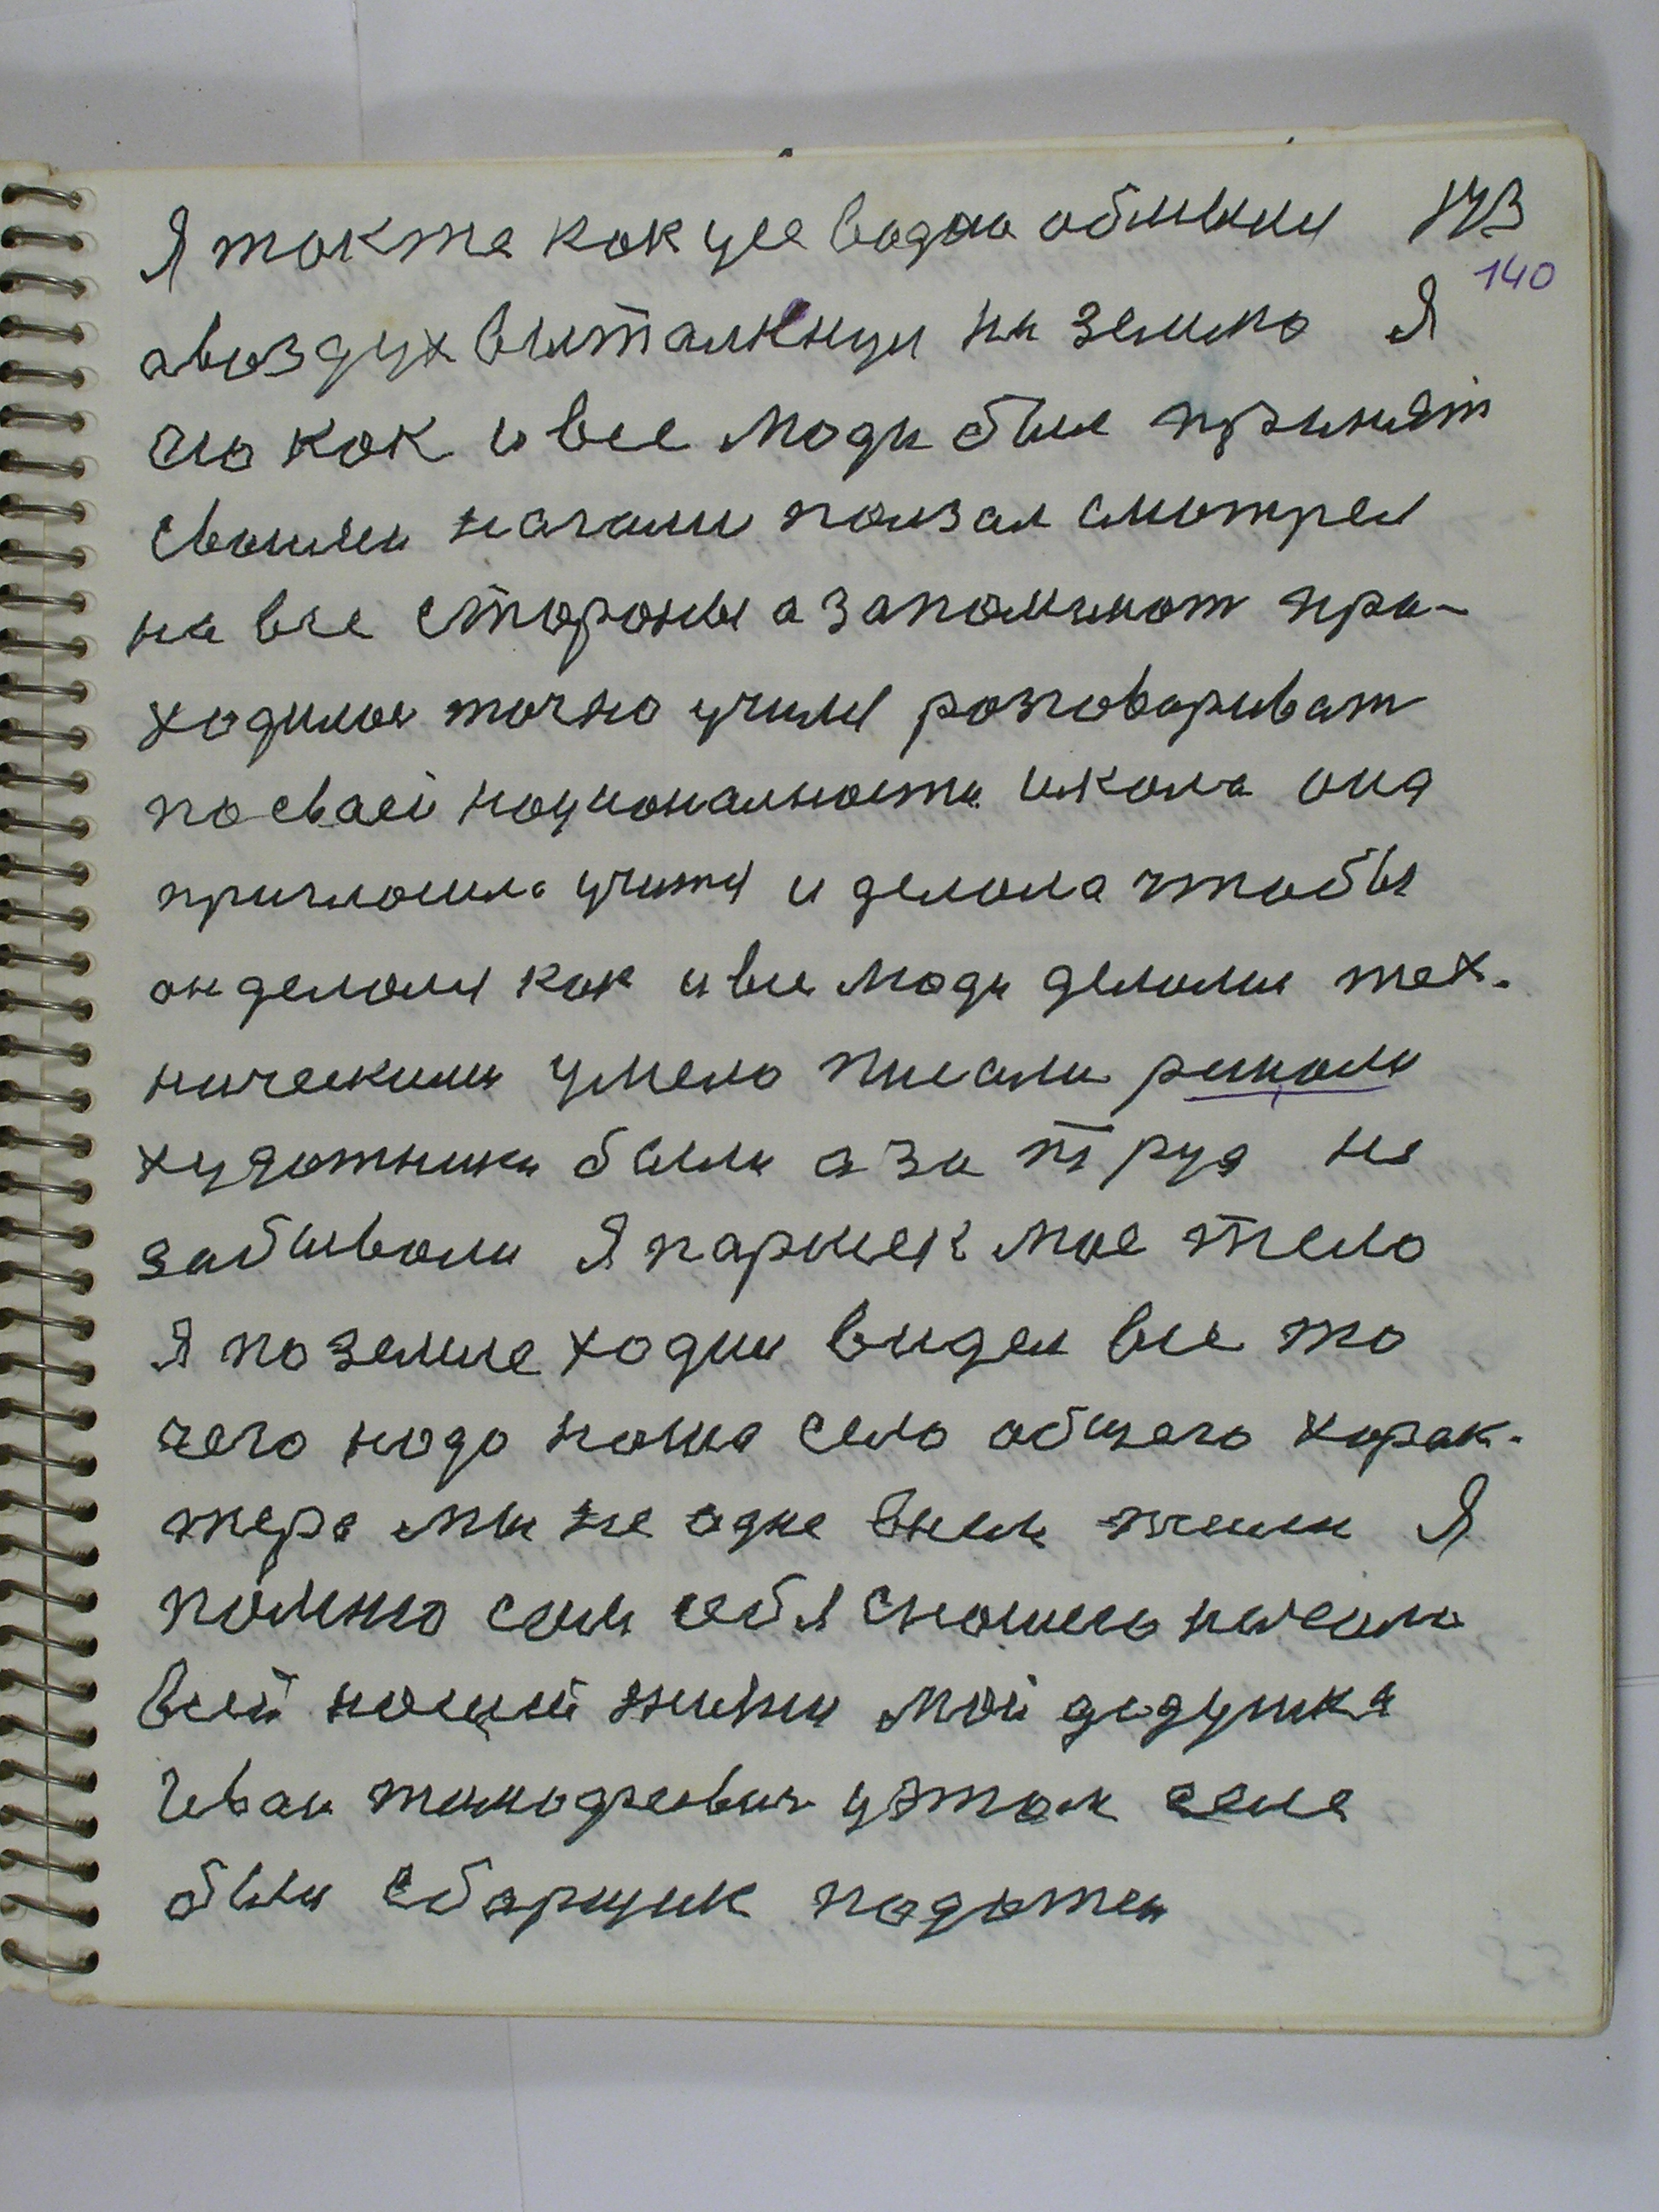 Я также как усе водою обмылся 143
140
а воздух выталкнул на землю Я
ею как и все люди был принят
своими ногами ползал смотрел
на все стороны а запоминат при-
ходилос точно учился разговариват
по сваей национальности школа она
пригласила учится и делала чтобы
он делался как и все люди делалися тех-
ническими умело писали рисоли
художники были а за труд не
забывали Я паринек мое тело
Я по земле ходил видел все то
чего надо наша село общего харак-
тера мы не одне в нем жили Я
помню сам себя с нашего начала
всей нашей жизни мой дедушка
Иван тимофеевич у этом селе
был сборщик податей